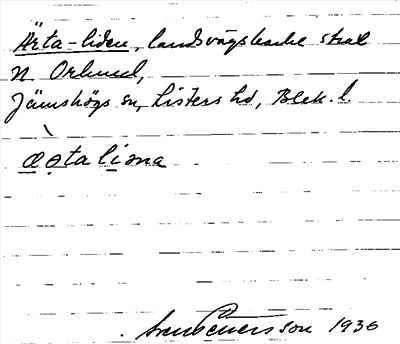 Ärta-liden, landsvägsbacke strax
N. Orlund,
Jämshögs sn, Listers hd, Blek. l.
œṛtaliəna
Sven Benson 1936